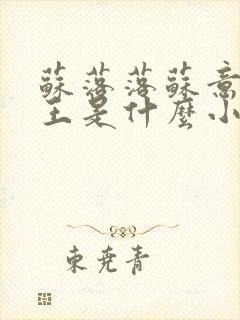 蘇落落蘇意
王是什麼小
東堯青